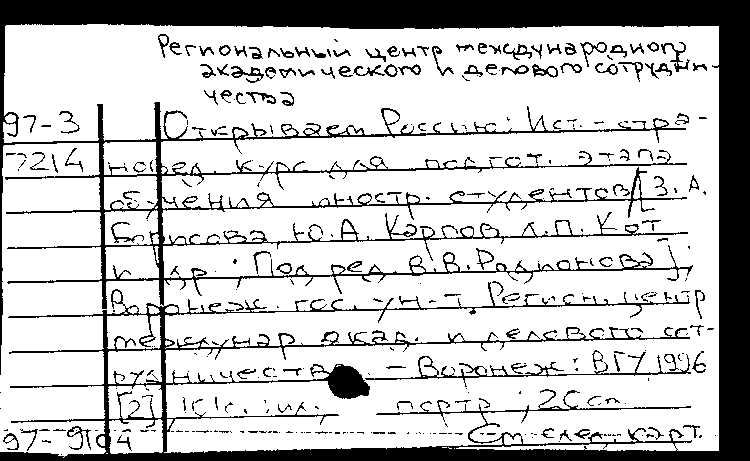 Региональный центр международного
академического и делового сотрудни-
чества
97-3 Открываем Россию: Ист.-стра-
7214 новед. курс для подгот. этапа
обучения иностр. студентов / [З. А.
Борисова, Ю. А. Карпов, Л. П. Кот
и др.; Под ред. В. В. Родионова];
Воронеж. гос. ун-т. Регион. центр
междунар. акад. и делового сот-
рудничества. - Воронеж: ВГУ 1996
[2], с. : ил., портр.; 20 см
97-9104 См след. карт.